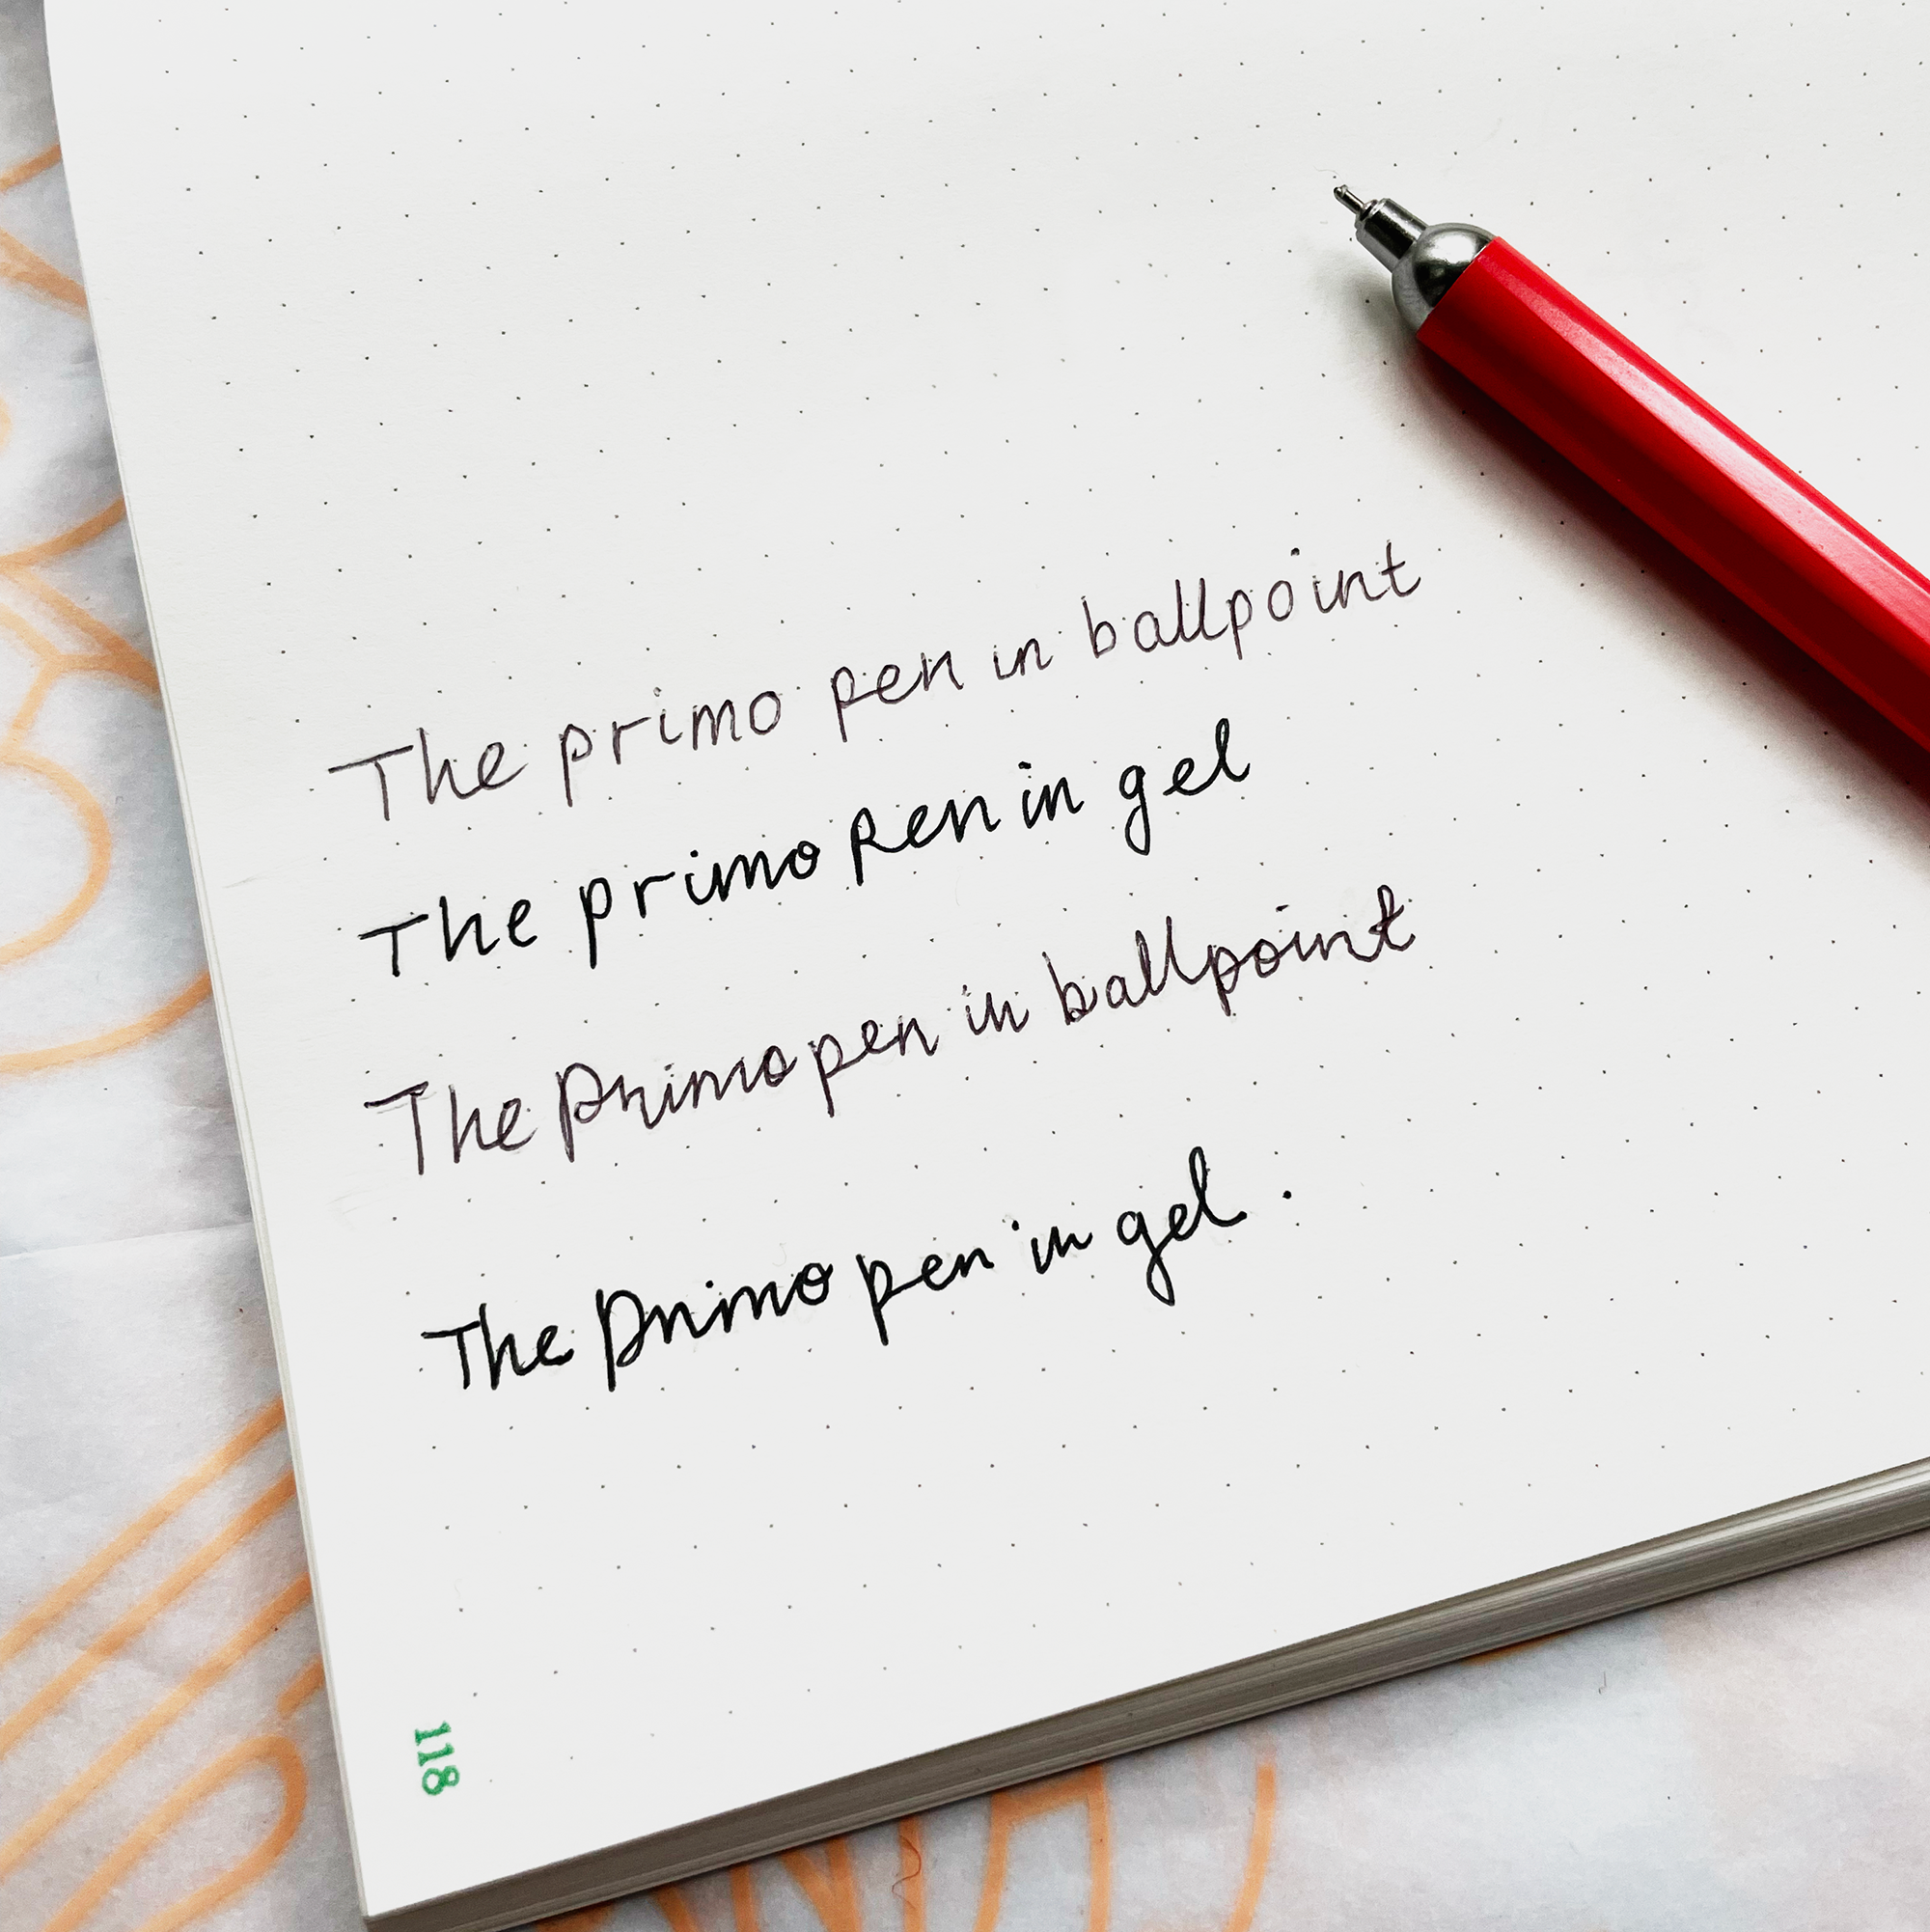 The primo pen in ballpoint
The primo pen in gel
The Primo pen in ballpoint
The Primo pen in gel .
118